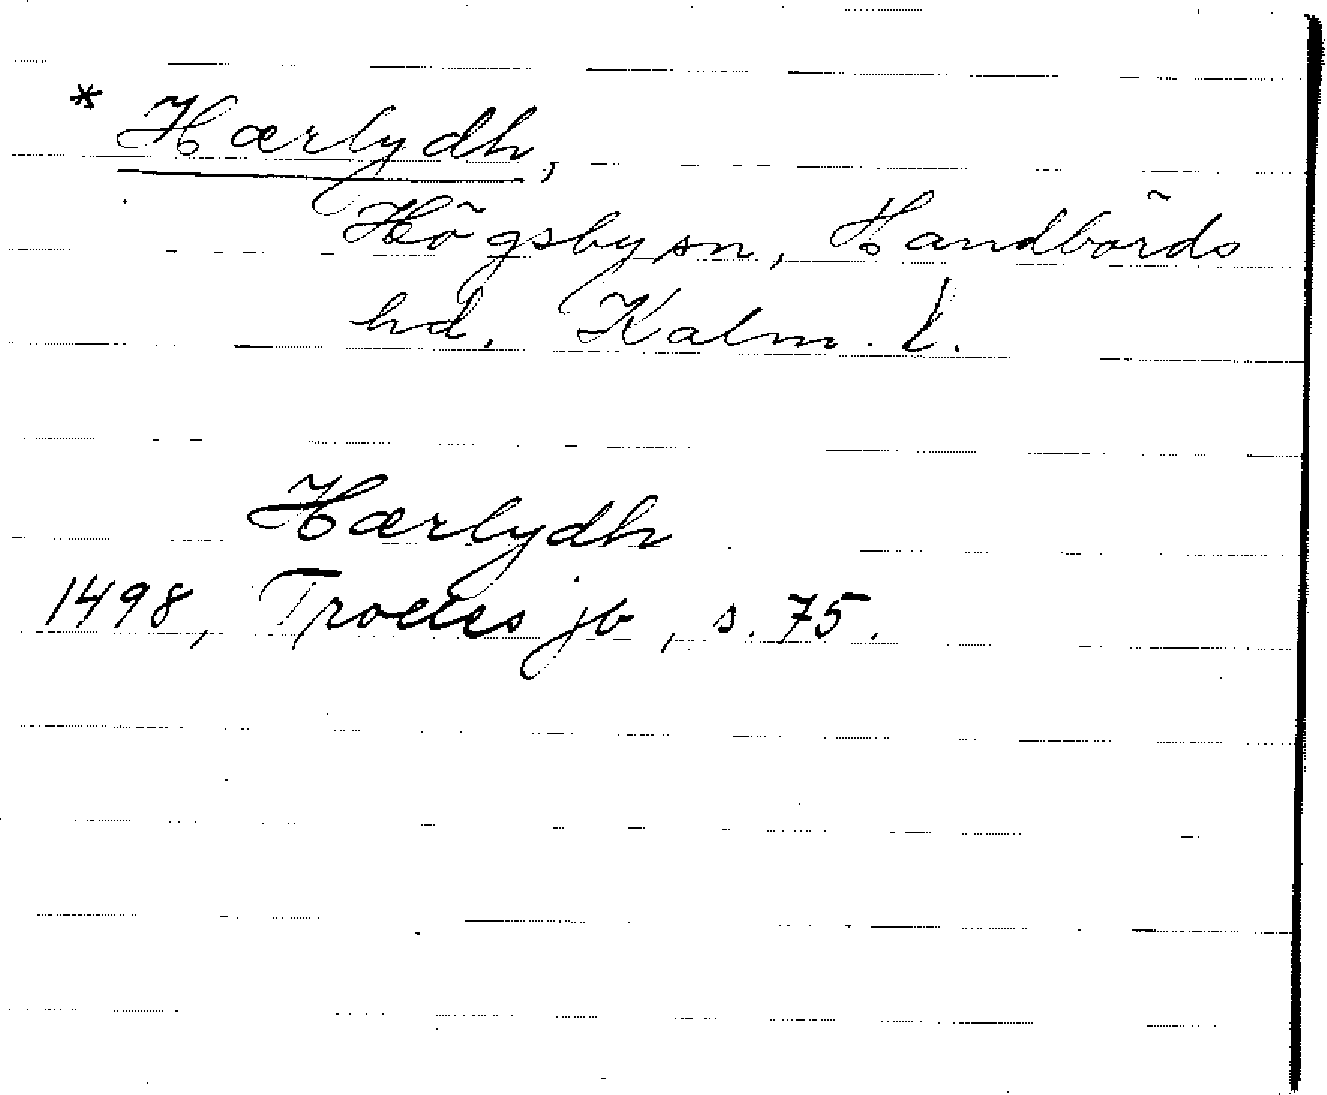 * Hærlydh,
Högsby sn, Handbörds
hd. Kalm. l.
Hærlydh
1498, Trolles jb, s. 75.